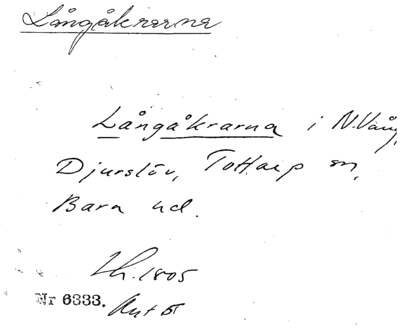 Långåkrarna
Långåkrarna i N. Vång,
Djurslöv, Tottarp sn,
Bara hd.
1805
Nr 6333.